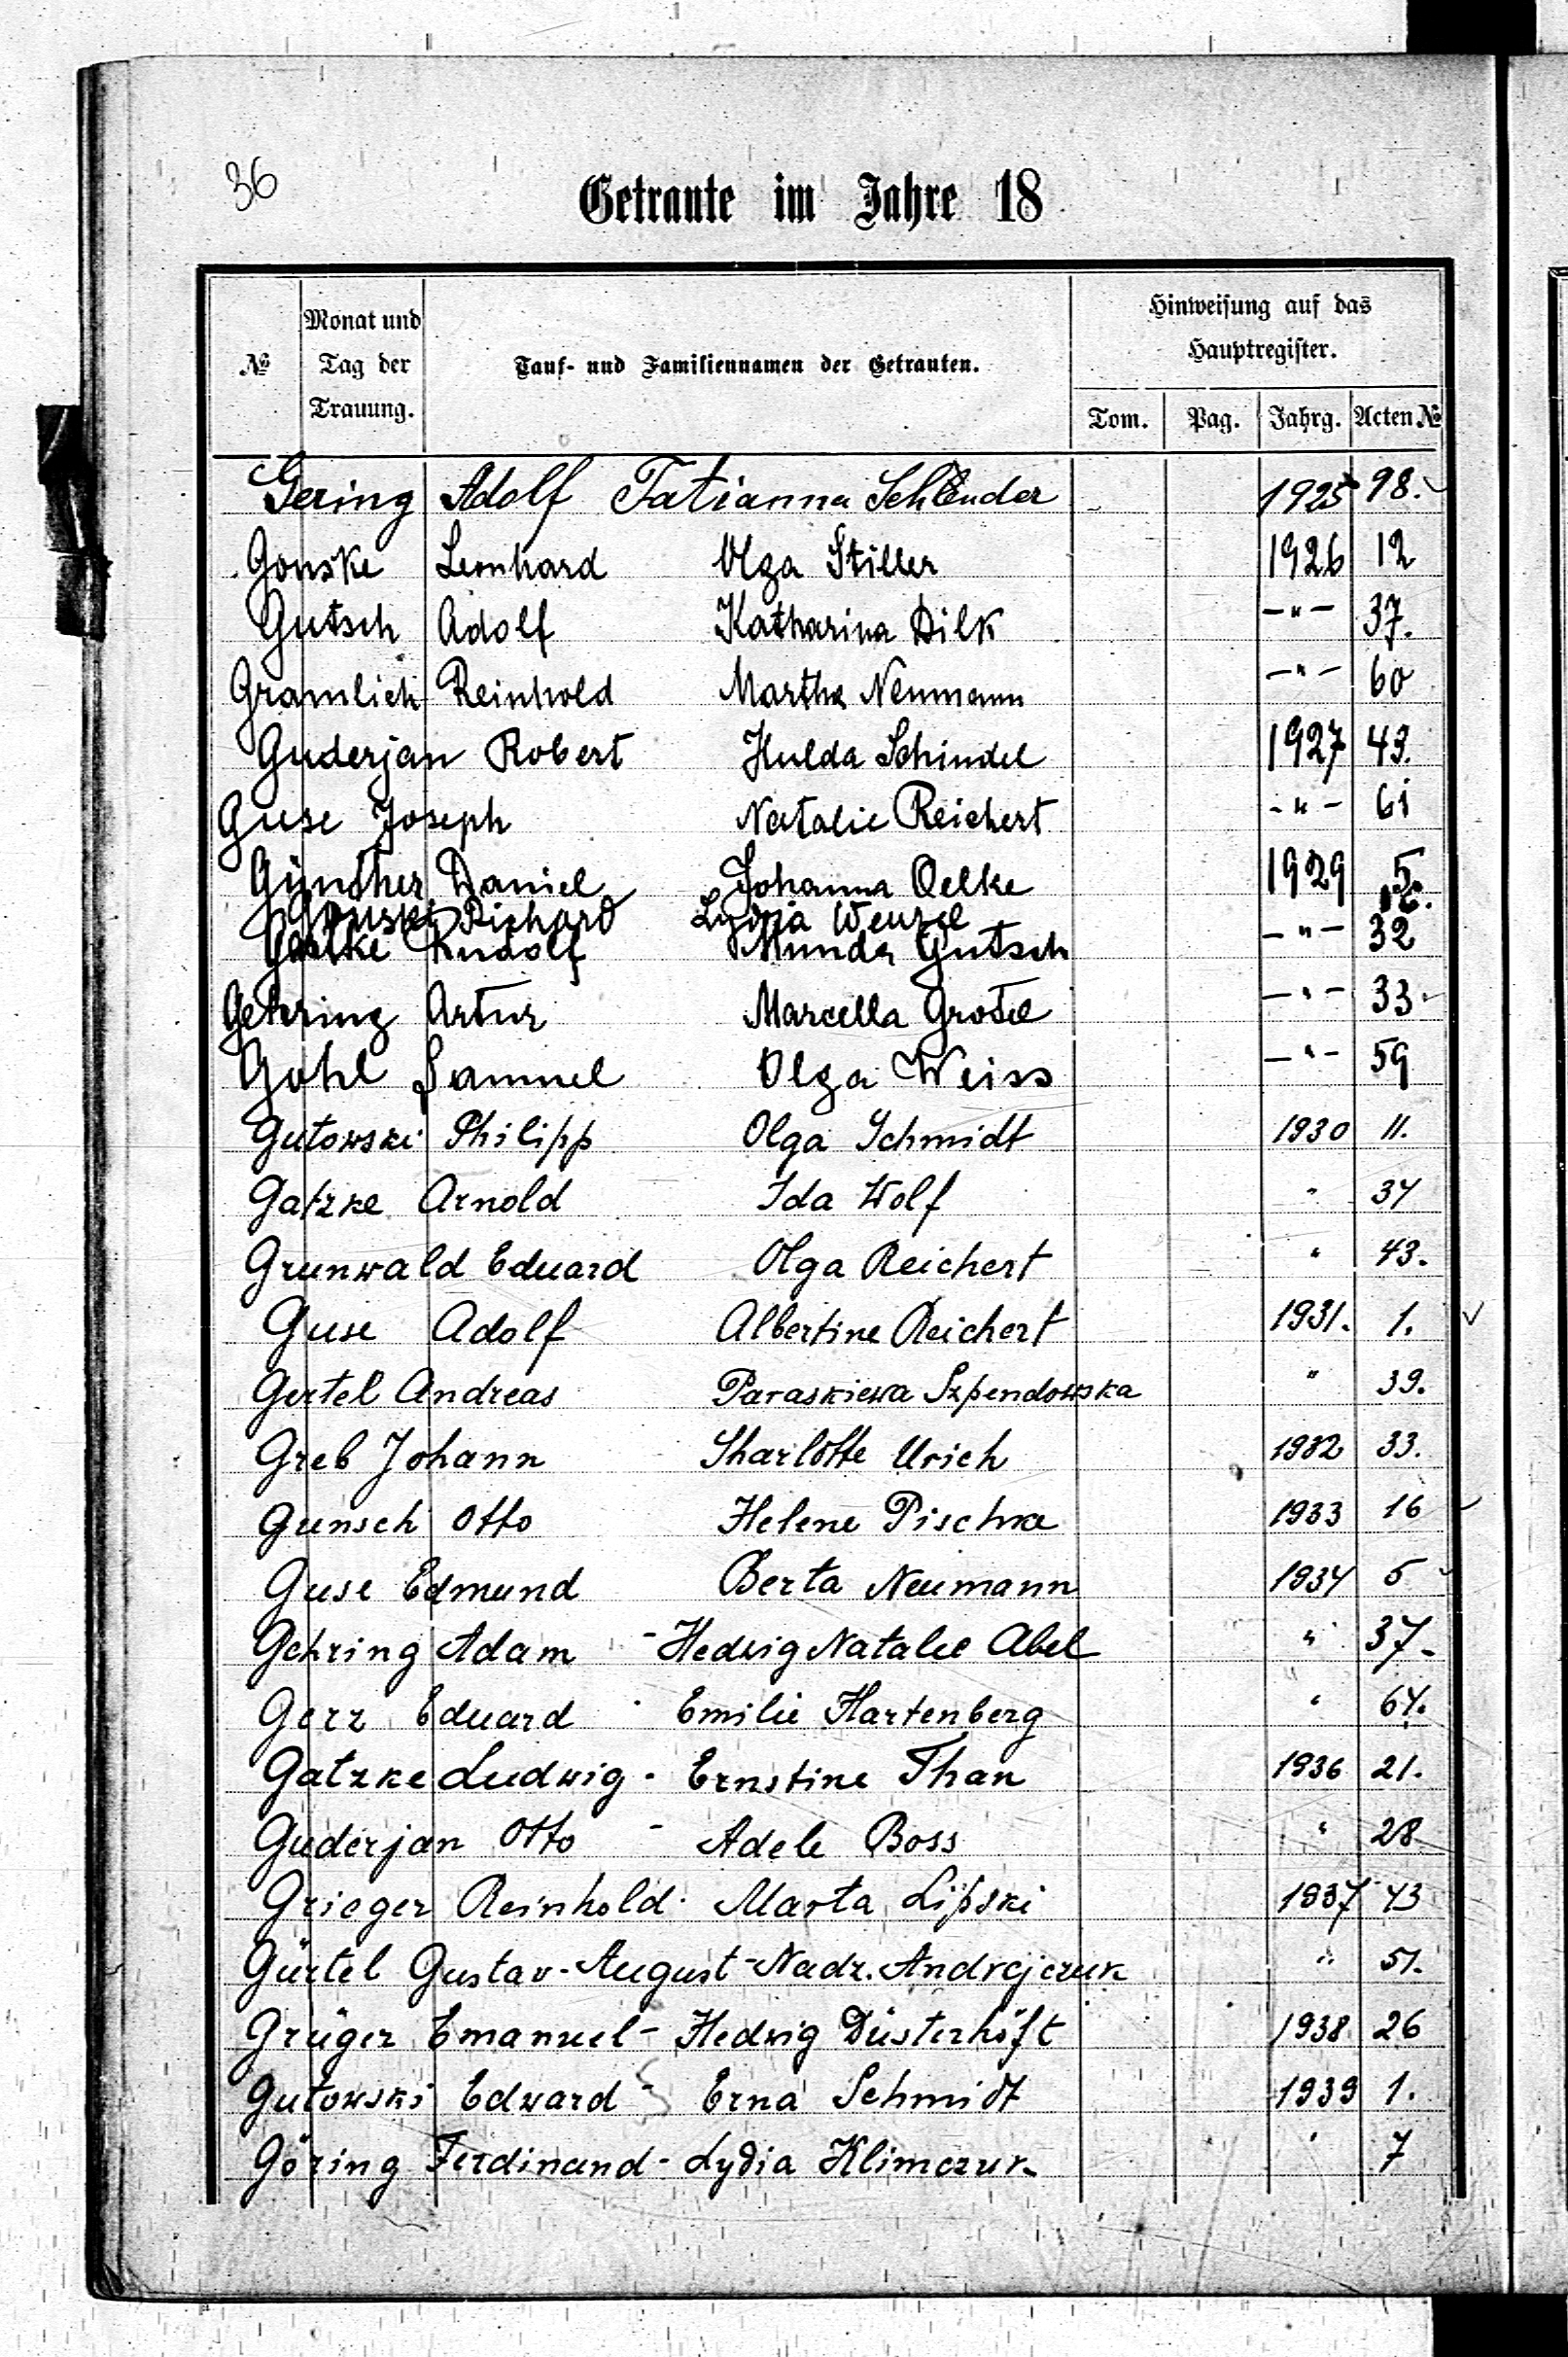 36
Getraute im Jahre 18
№ Monat und Tag der Trauung. Tauf- und Familiennamen der Getrauten. Hinweisung auf das Hauptregister.
Tom. Pag. Jahrg. Acten №
Gering Adolf Tatianna Schlender 1925 98.
Gonske Leonhard Olga Stiller 1926 12
Gutsch Adolf Katharina Dilk -"- 37.
Gramlich Reinhold Martha Neumann -"- 60
Guderjan Robert Hulda Schindel 1927 43.
Guse Joseph Natalie Reichert -"- 61
Günther Daniel Johanna Oelke 1929 5
Gonske Richard Lydia Wenzel
Rudolf Munda Gutsch -"- 32
Gehring Artur Marcella Grosel -"- 33
Gohl Samuel Olga Weiss -"- 59
Gutowski Philipp Olga Schmidt 1930 11.
Gatzke Arnold Ida Wolf " 34
Grunwald Eduard Olga Reichert " 43.
Guse Adolf Albertine Reichert 1931. 1.
Gertel Andreas Paraskiewa Szpendowska " 39.
Greb Johann Sharlotte Urich 1932 33.
Gunsch Otto Helene Pischke 1933 16
Guse Edmund Berta Neumann 1934 5
Gehring Adam - Hedwig Natalie Abel " 37-
Gerz Eduard - Emilie Hartenberg " 64.
Gatzke Ludwig - Ernstine Than 1936 21.
Guderjan Otto - Adele Boss " 28
Grieger Reinhold - Marta Lipski 1937 43
Gürtel Gustav-August - Nadz. Andrejczuk " 51.
Grüger Emanuel - Hedwig Düsterhöft 1938 26
Gutowski Edward - Erna Schmidt 1939 1.
Göring Ferdinand - Lydia Klimczuk " 7